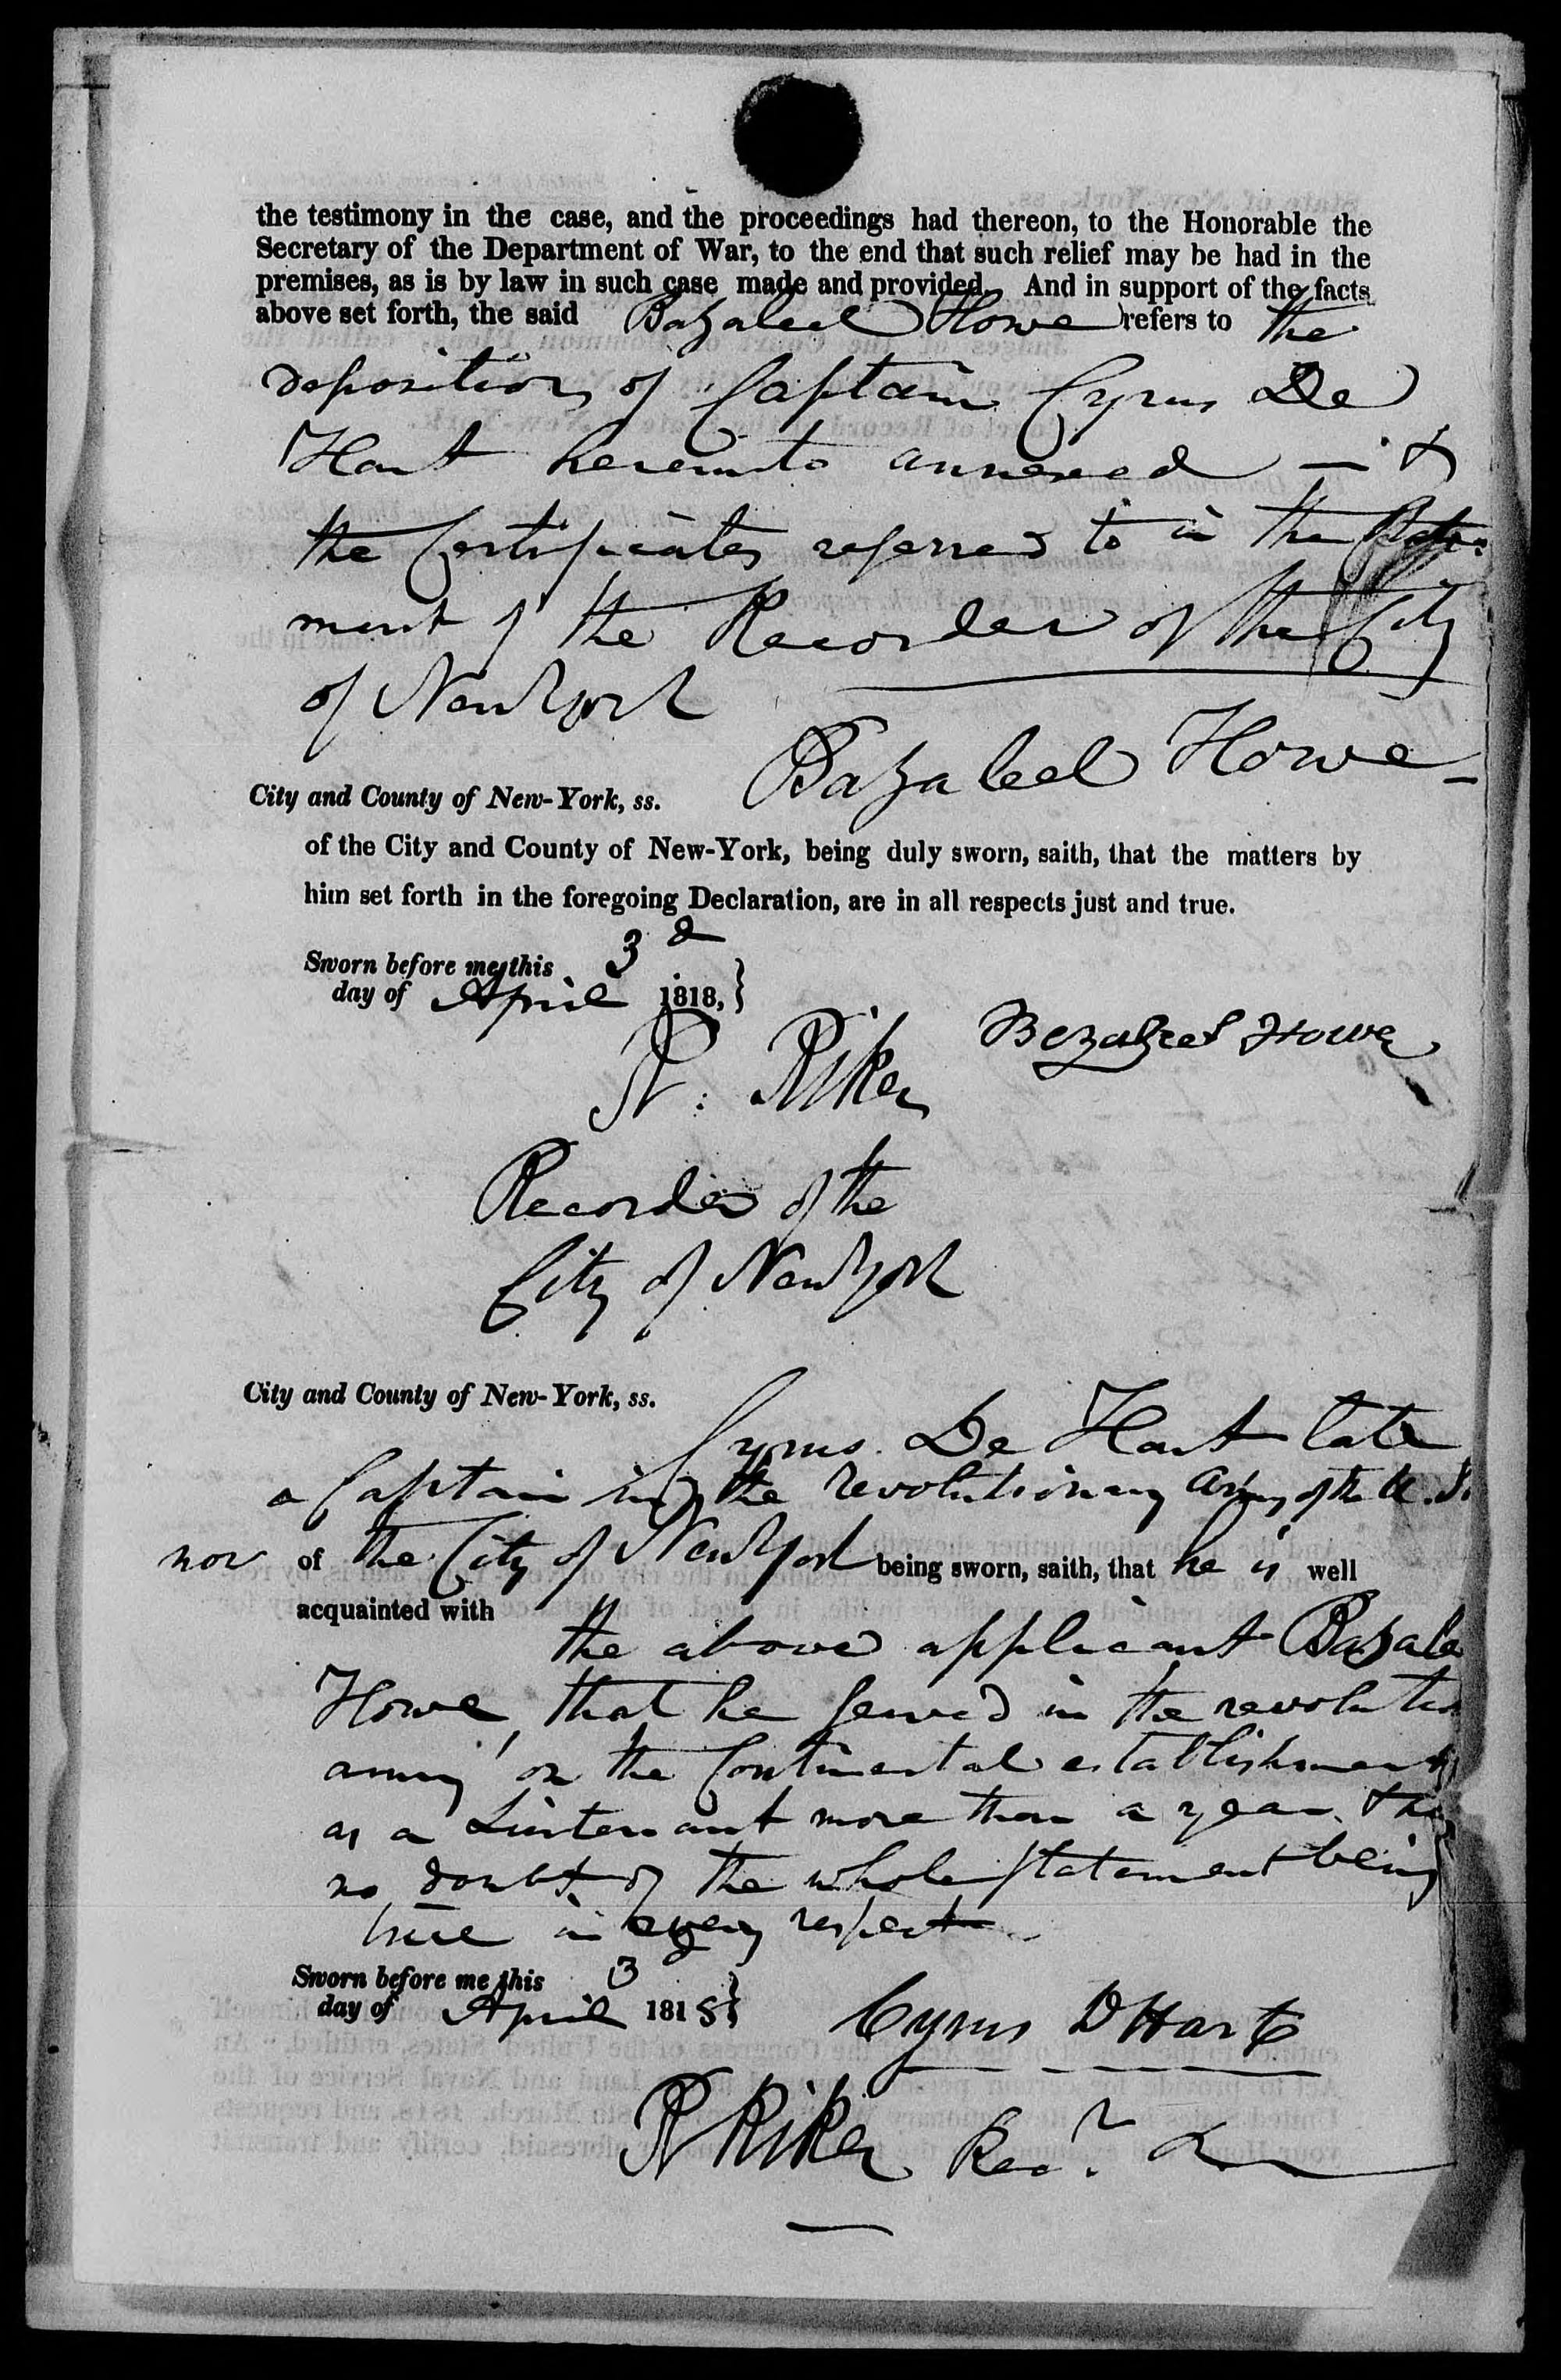 the testimony in the case, and the proceedings had thereon, to the Honorable the
Secretary of the Department of War, to the end that such relief may be had in the
premises, as is by law in such case made and provided. And in support of the facts
above set forth, the said Bazaleel Howe refers to the
deposition of Captain Cyrus De
Hart hereunto annexed — &
the Certificates referred to in the State-
ment of the Recorder of the City
of New York
Bazaleel Howe
City and County of New-York, ss.
of the City and County of New-York, being duly sworn, saith, that the matters by
him set forth in the foregoing Declaration, are in all respects just and true.
Sworn before me this 3d
day of April 1818, }
Bezaleel Howe
R: Riker
Recorder of the
City of New York
City and County of New-York, ss.
Cyrus De Hart late
a Captain in the revolutionary army of the U.S.
now of the City of New York being sworn, saith, that he is well
acquainted with
the above applicant Bazale
Howe, that he served in the revolution
army on the Continental establishment
as a Lieutenant more than a year & has
no doubt of the whole statement being
true in every respect
Sworn before me this 3d
day of April 1818 }
Cyrus D Hart
R Riker Recr.